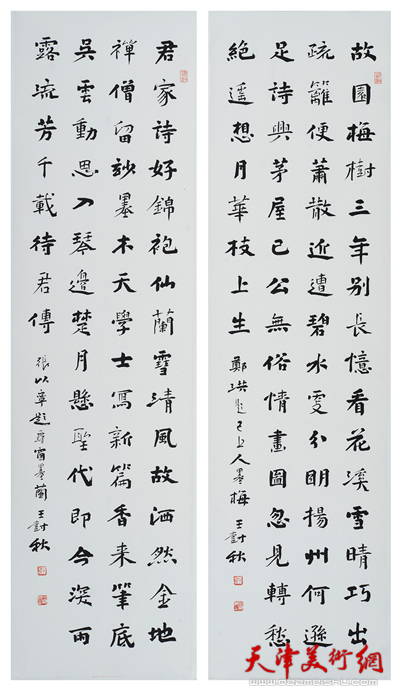 故園梅樹三年別長憶看花溪雪晴巧出
疏籬便蕭散近遭碧水更分明揚州何遜
足詩興茅屋已公無俗情畫圖忽見轉愁
絕遥想月華枝上生
鄭珙題已上人墨梅 王對秋
君家詩好錦袍仙蘭雪清風故洒然金地
禪僧留妙墨木天學士寫新篇香来筆底
吳雲動思入琴邊楚月懸聖代即今深雨
露流芳千載待君傳
張以寧題 墨蘭 王對秋
天津美術網
www.022meishu.com